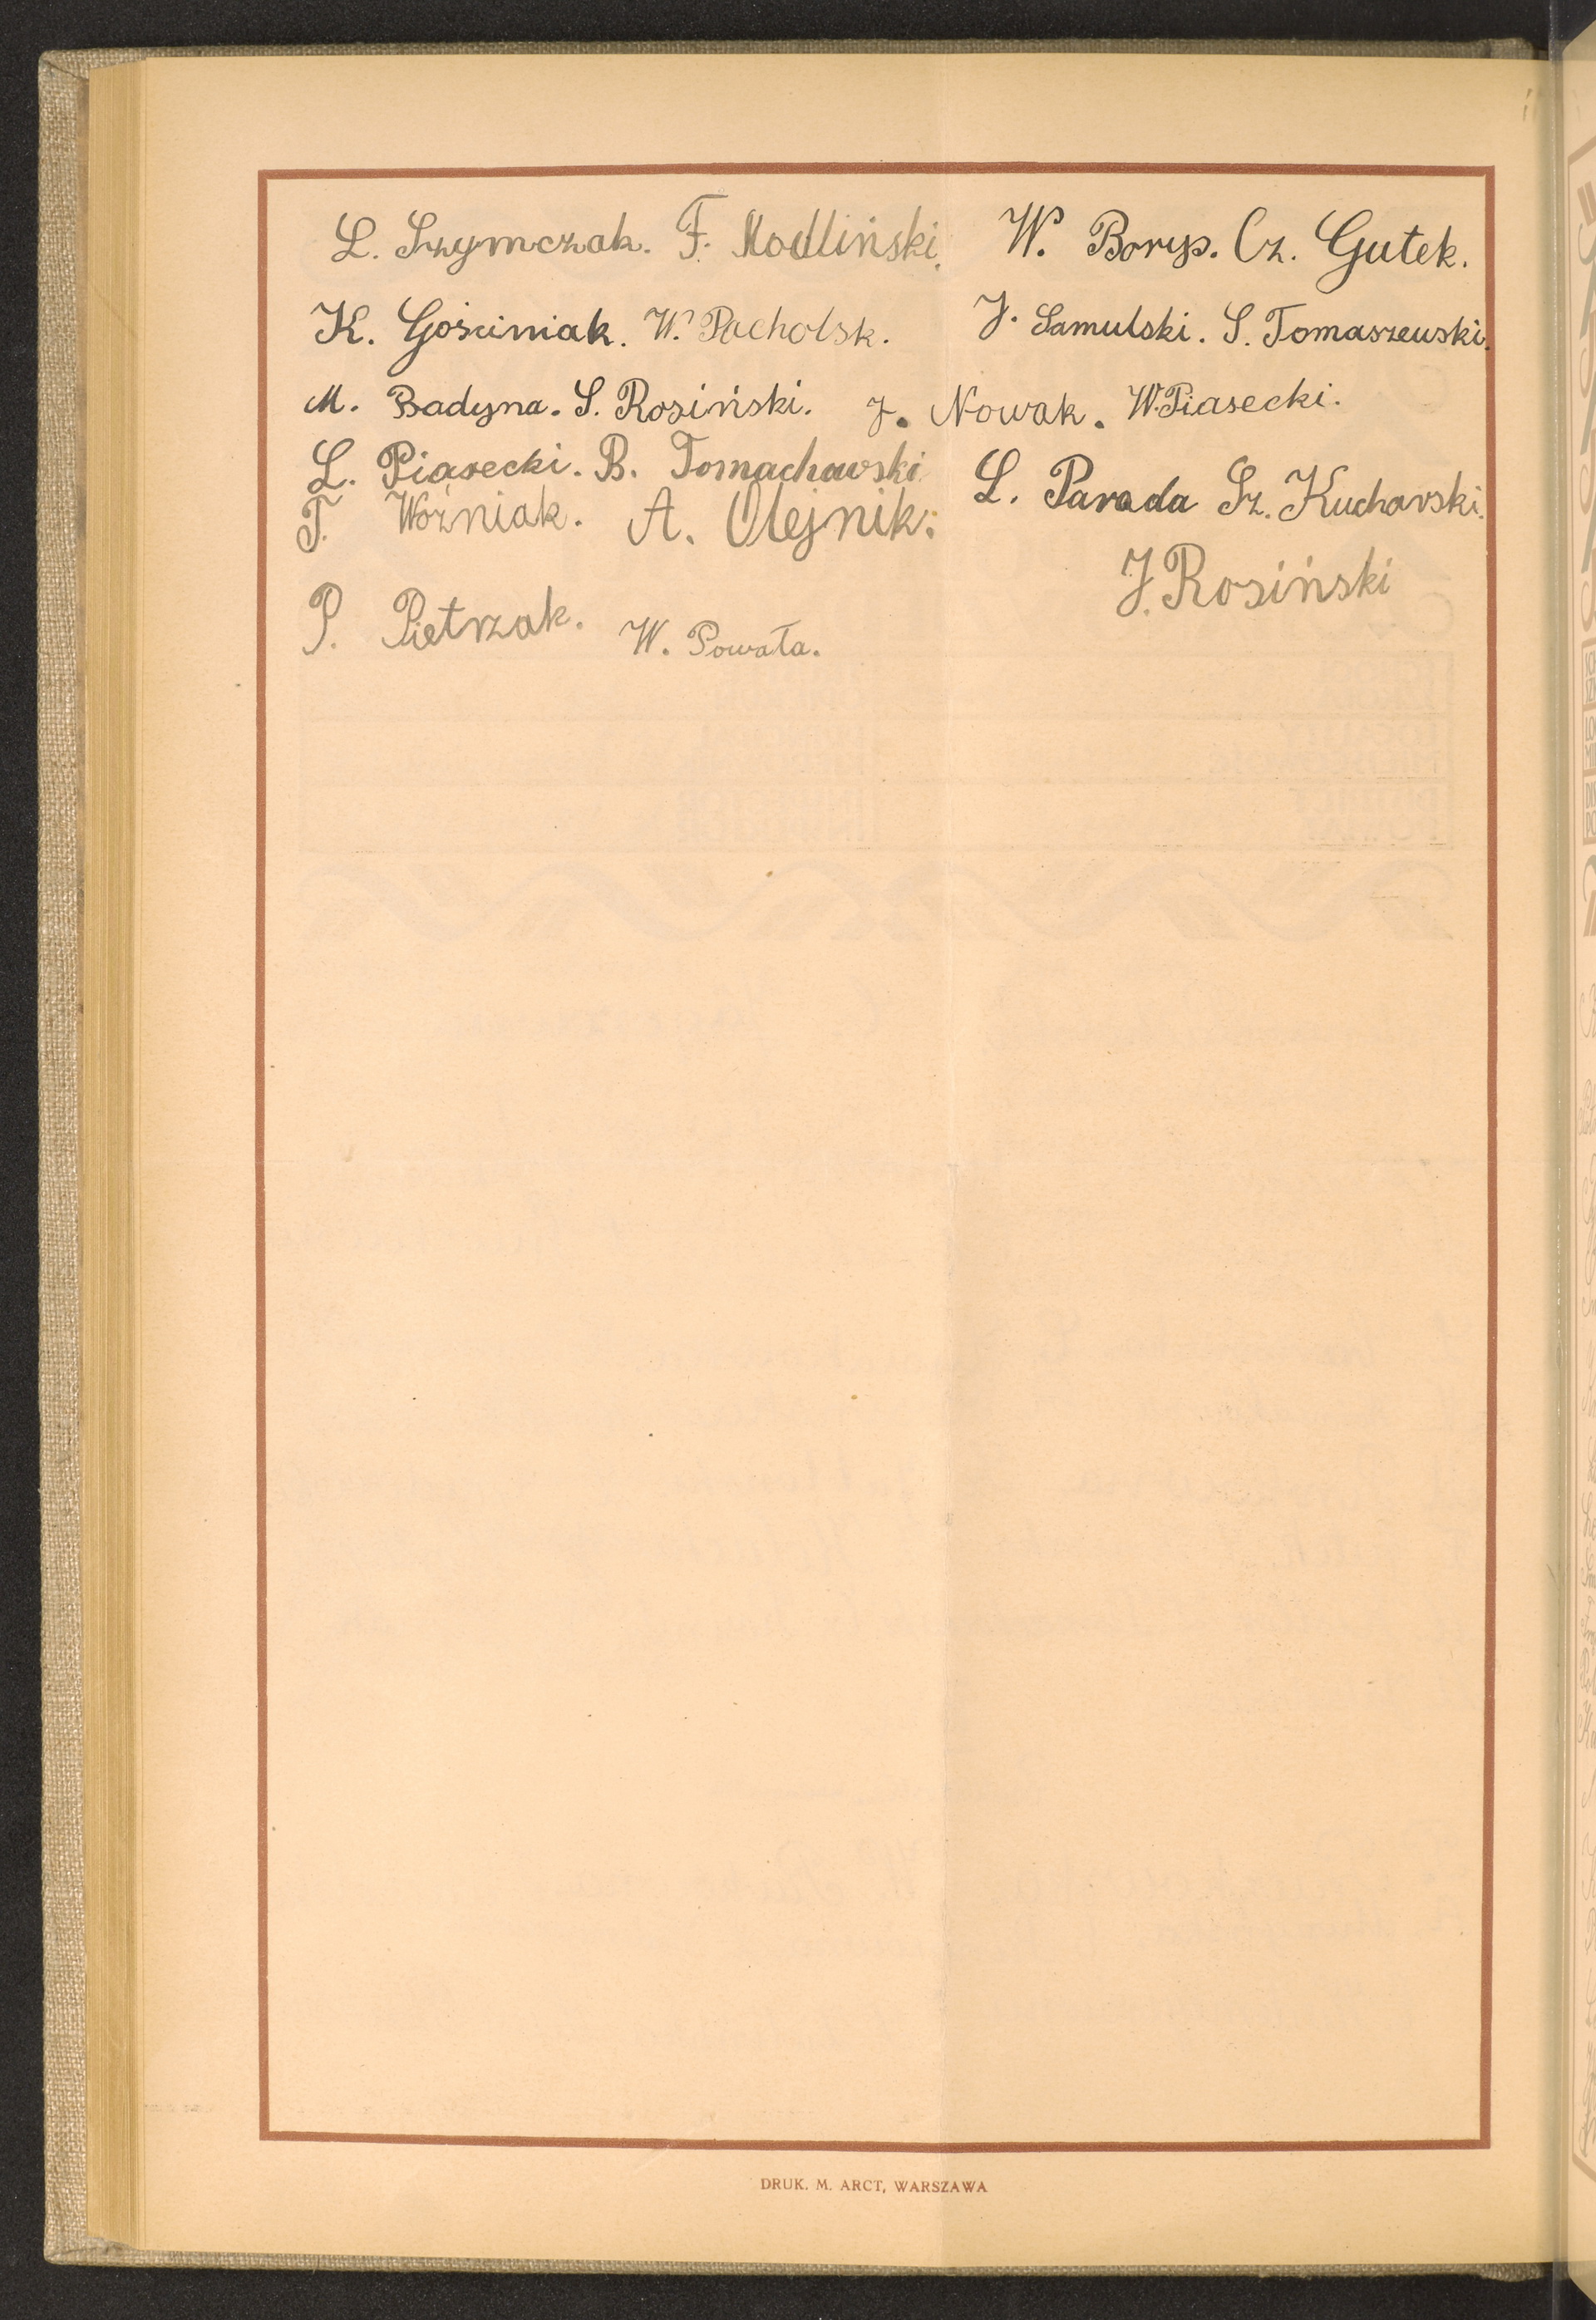 L. Szymczak. F. Modliński. W. Borys. Cz. Gutek.
K. Gościniak. W. Pacholsk. J. Samulski. S. Tomaszewski.
M. Badyna. S. Rosiński. J. Nowak. W. Piasecki.
L. Piasecki. B. Tomachowski L. Parada Sz. Kucharski.
T. Woźniak. A. Olejnik.
J. Rosiński
P. Pietrzak. W. Powała.
DRUK. M. ARCT, WARSZAWA